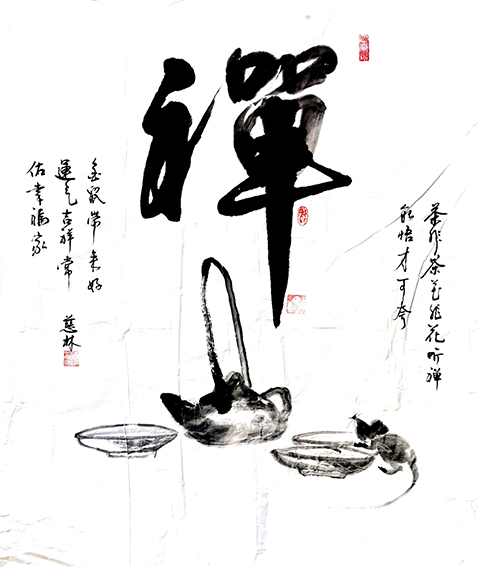 禪
茶作茶艺作花听禅
能悟才可夸
金鼠常来好
運气吉祥常
佑幸福家
慈林